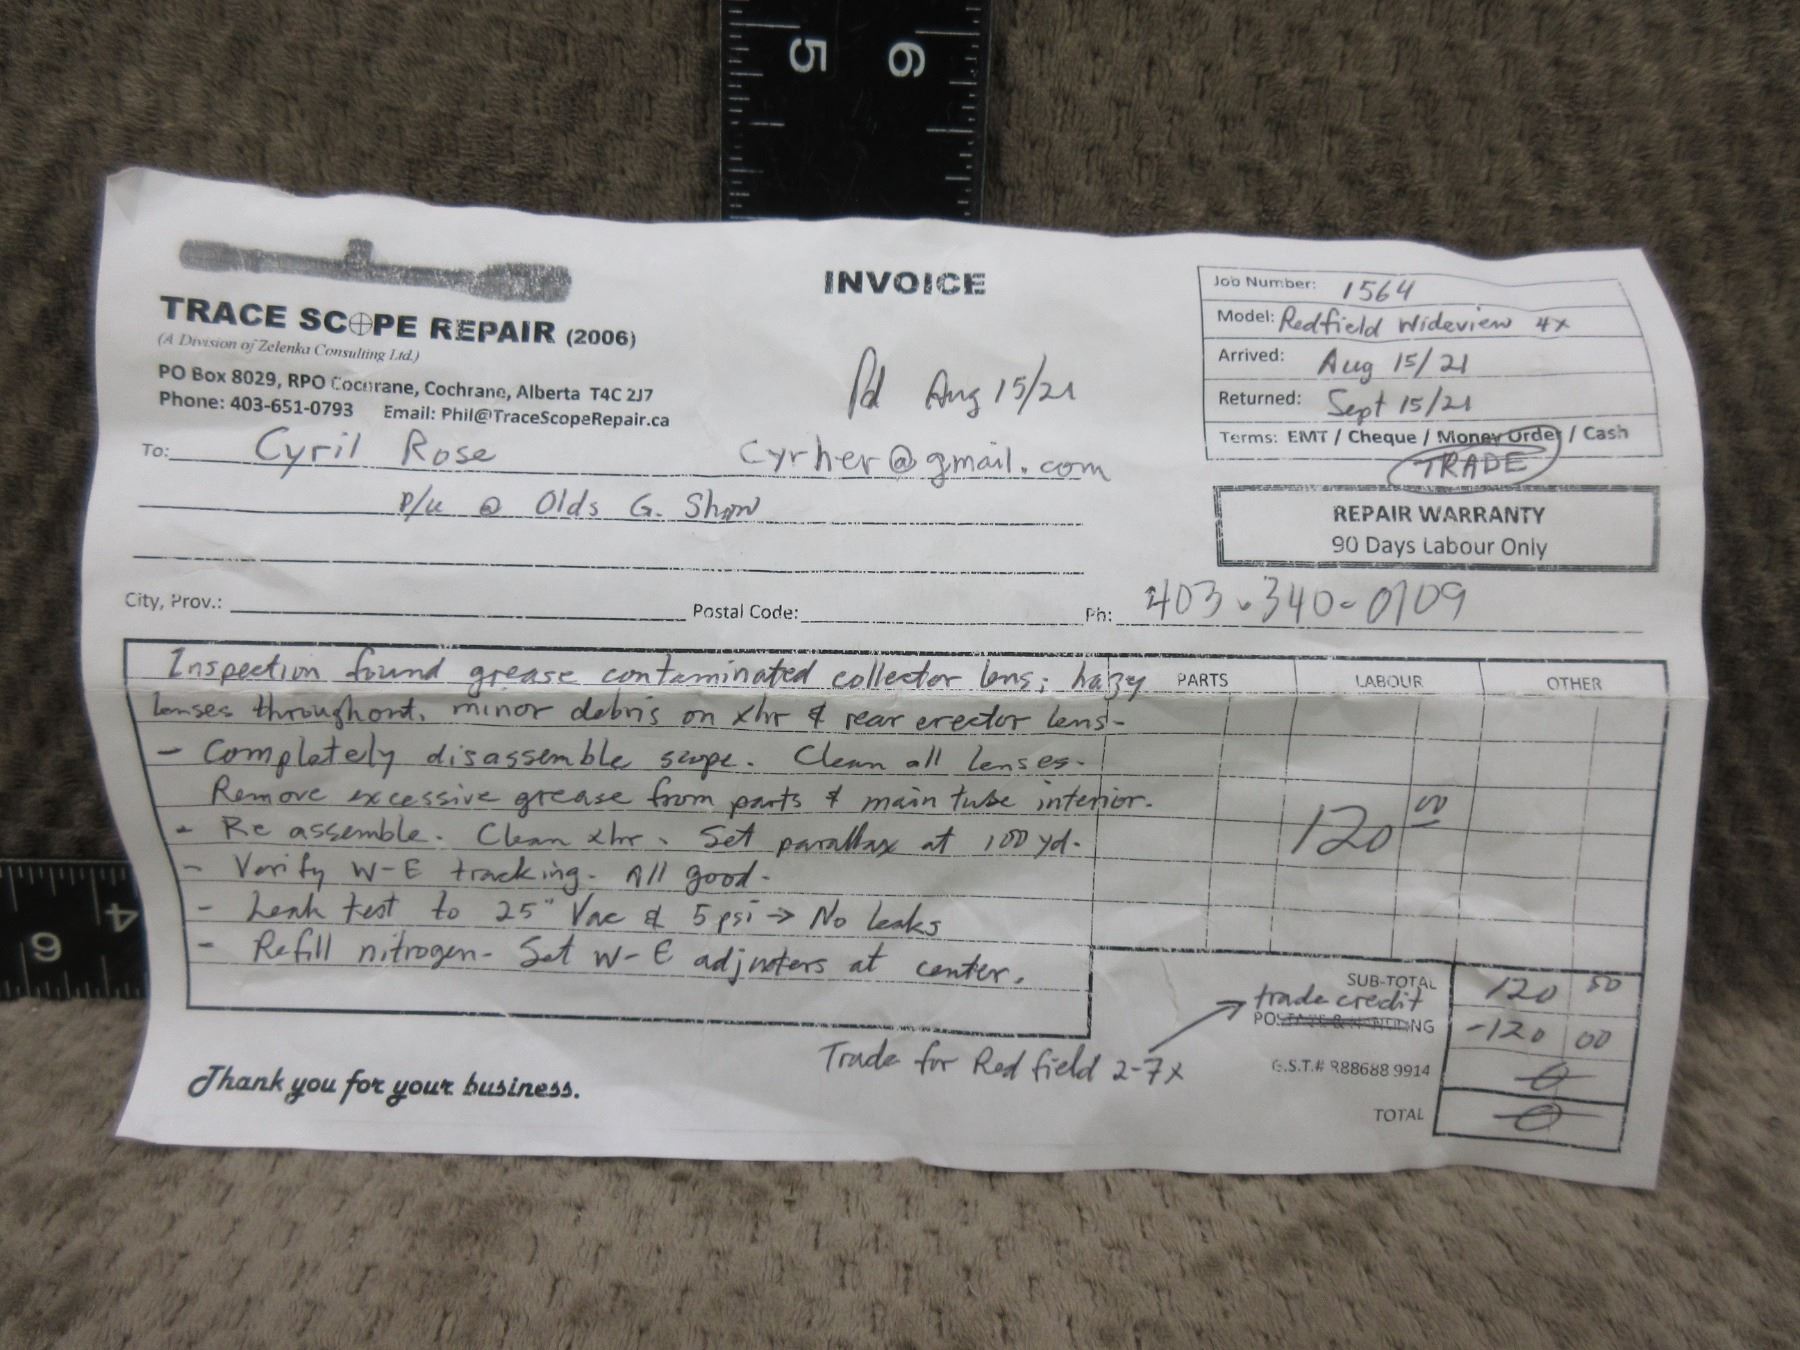 5 6
TRACE SCOPE REPAIR (2006)
(A Division of Zelenka Consulting Ltd.)
PO Box 8029, RPO Cochrane, Cochrane, Alberta T4C 2J7
Phone: 403-651-0793 Email: Phil@TraceScopeRepair.ca
INVOICE
Pd Aug 15/21
Job Number: 1564
Model: Redfield Wideview 4x
Arrived: Aug 15/21
Returned: Sept 15/21
Terms: EMT / Cheque / Money Order / Cash
TRADE
To: Cyril Rose Cyrher@gmail.com
P/u @ Olds G. Show
REPAIR WARRANTY
90 Days Labour Only
City, Prov.: Postal Code: Ph: 403-340-0109
PARTS LABOUR OTHER
Inspection found grease contaminated collector lens; hazy
lenses throughout, minor debris on xhr & rear erector lens-
- Completely disassemble scope. Clean all lenses.
Remove excessive grease from parts & main tube interior.
- Re assemble. Clean xhr. Set parallax at 100 yd.
120 00
- Verify W-E tracking. All good.
- Leak test to 25" Vac & 5 psi → No leaks
- Refill nitrogen. Set W-E adjusters at center.
SUB-TOTAL 120 00
trade credit
POSTAGE & HANDLING -120 00
Trade for Redfield 2-7x
G.S.T.# R88688 9914 0
TOTAL 0
Thank you for your business.
4
6